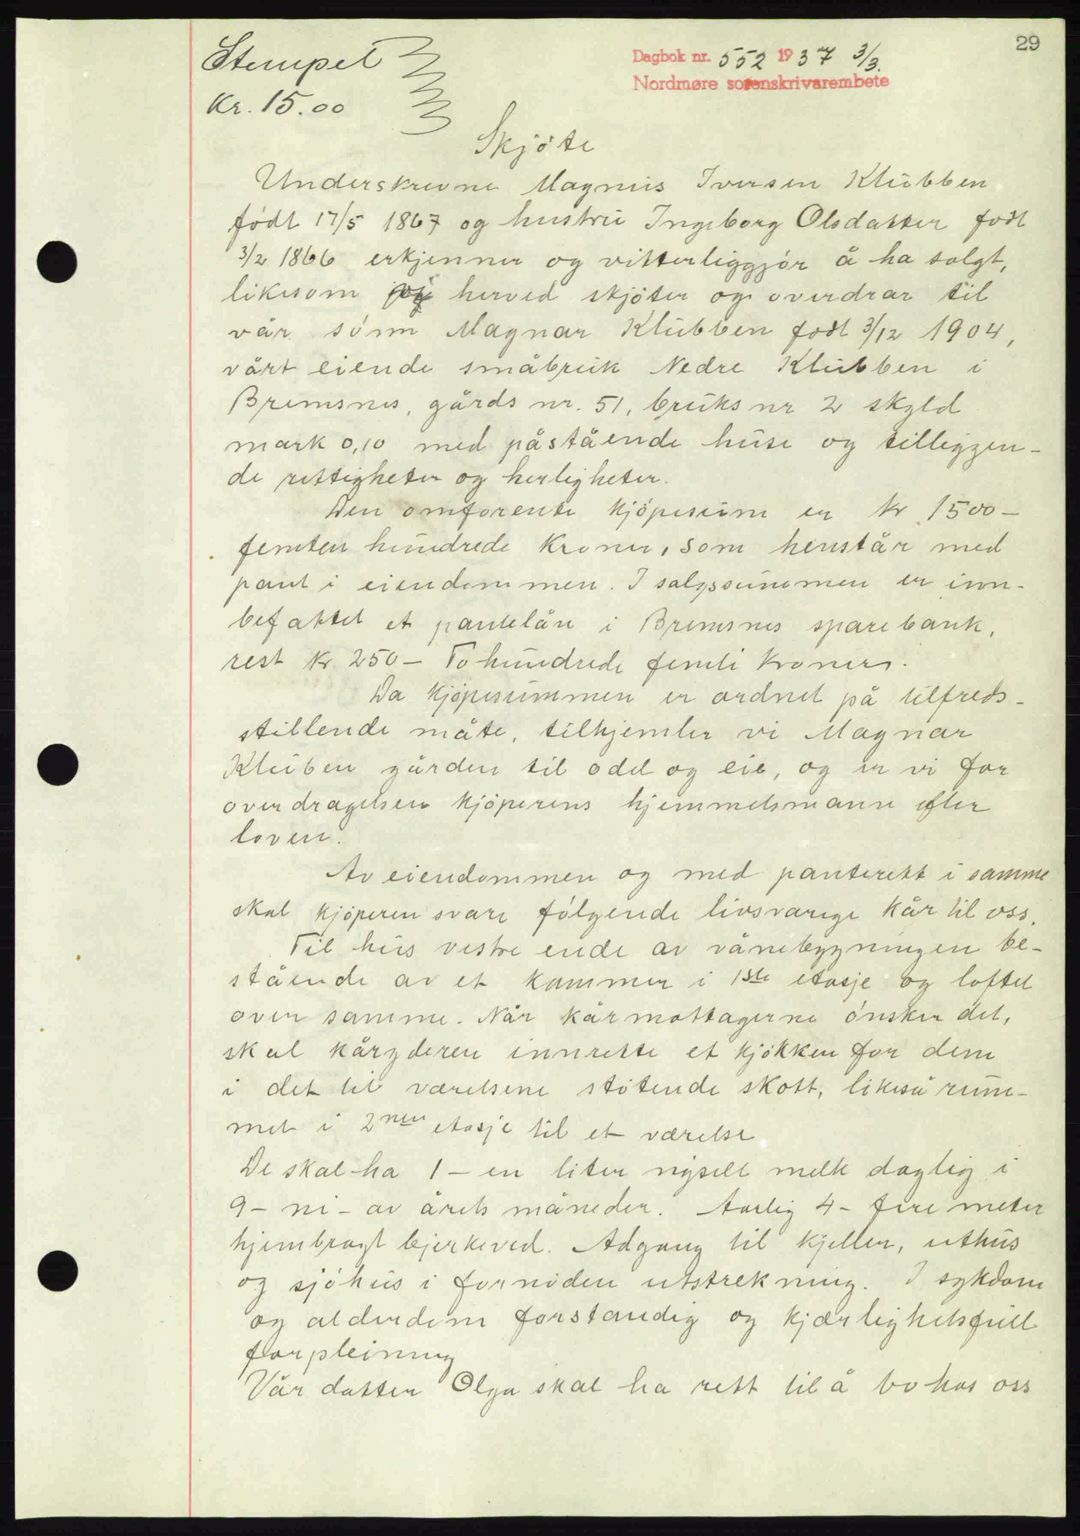 29
Stempel
Kr. 15.00
Dagbok nr. 552 1937 3/3.
Nordmøre sorenskrivarembete
Skjöte
Underskrevne Magnus Iversen Klubben
født 17/5 1867 og hustru Ingeborg Olsdatter født
3/2 1866 erkjenner og vitterliggjör å ha solgt,
likesom herved skjöter og overdrar til
vår sönn Magnar Klubben født 3/12 1904,
vårt eiende småbruk Nedre Klubben i
Bremsnes, gårds nr. 51, bruks nr 2 skyld
mark 0,10 med påstående huse og tilleggen-
de rettigheter og herligheter.
Den omforente kjöpesum er kr 1500—
femten hundrede kroner, som henstår med
pant i eiendommen. I salgssummen er inn-
befattet et pantelån i Bremsnes sparebank,
rest kr. 250— To hundrede femti kroner.
Da kjöpesummen er ordnet på tilfreds-
stillende måte, tilhjemler vi Magnar
Kluben gården til odel og eie, og er vi for
overdragelsen kjöperens hjemmelsmann efter
loven.
Av eiendommen og med panterett i samme
skal kjöperen svare fölgende livsvarige kår til oss.
Til hus vestre ende av vånebygningen be-
stående av et kammer i 1ste etasje og loftet
over samme. Når kårmottagerne önsker det,
skal kårgderen innrette et kjökken for dem
i det til værelsene stötende skott, likeså rum-
met i 2nen etasje til et værelse
De skal ha 1— en liter nysilt melk daglig i
9— ni— av årets måneder. Aarlig 4— fire meter
hjembragt bjerkeved. Adgang til kjeller, uthus
og sjöhus i fornöden utstrekning. I sykdom
og alderdom forstandig og kjærlighetsfull
forpleining
Vår datter Olga skal ha rett til å bo hos oss